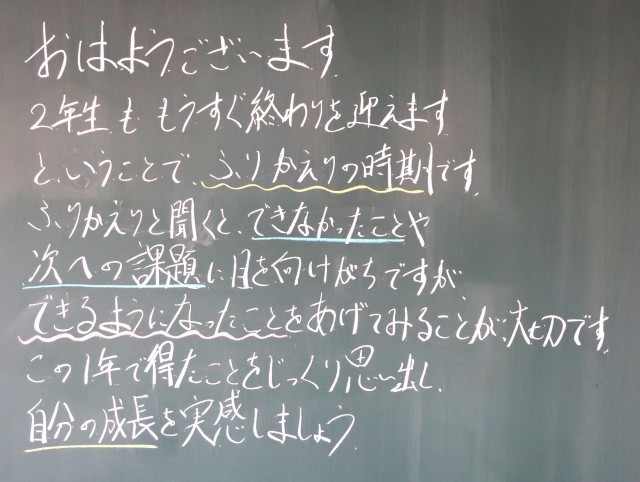 おはようございます
2年生も もうすぐ終わりを迎えます
ということで、ふりかえりの時期です。
ふりかえりと聞くと、できなかったことや
次への課題に目を向けがちですが
できるようになったことをあげてみることが、大切です。
この1年で得たことをじっくり思い出し、
自分の成長を実感しましょう